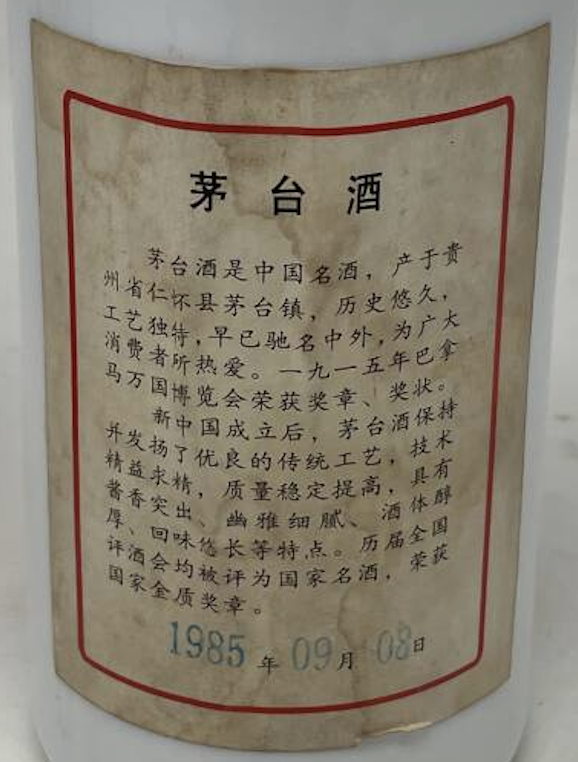 茅台酒
茅台酒是中国名酒，产于贵
州省仁怀县茅台镇，历史悠久，
工艺独特，早已驰名中外，为广大
消费者所热爱。一九一五年巴拿
马万国博览会荣获奖章、奖状。
新中国成立后，茅台酒保持
并发扬了优良的传统工艺，技术
精益求精，质量稳定提高，具有
酱香突出、幽雅细腻、酒体醇
厚、回味悠长等特点。历届全国
评酒会均被评为国家名酒，荣获
国家金质奖章。
1985年09月08日